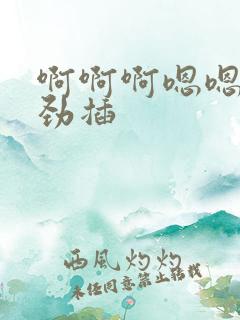 啊啊啊嗯嗯
劲插
西风灼灼
未经同意禁止转载